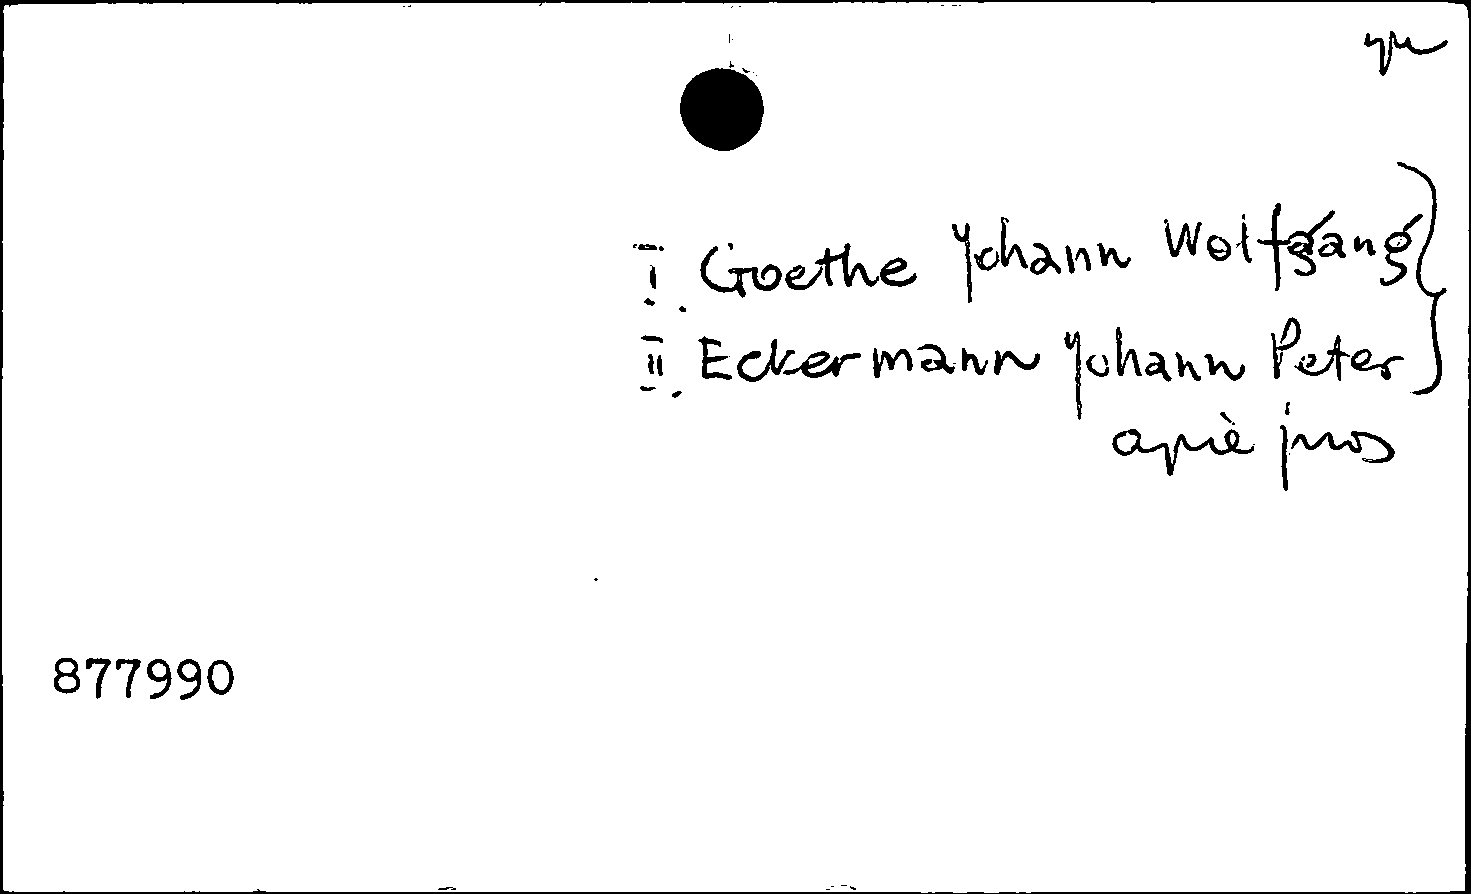 I. Goethe Johann Wolfgang
II. Eckermann Johann Peter
apiè juos
877990